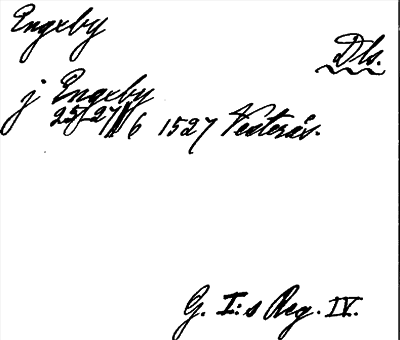 Engxby
Dls.
j Engxby
25-27/6 1527 Vesterås.
G. I:s Reg. IV.